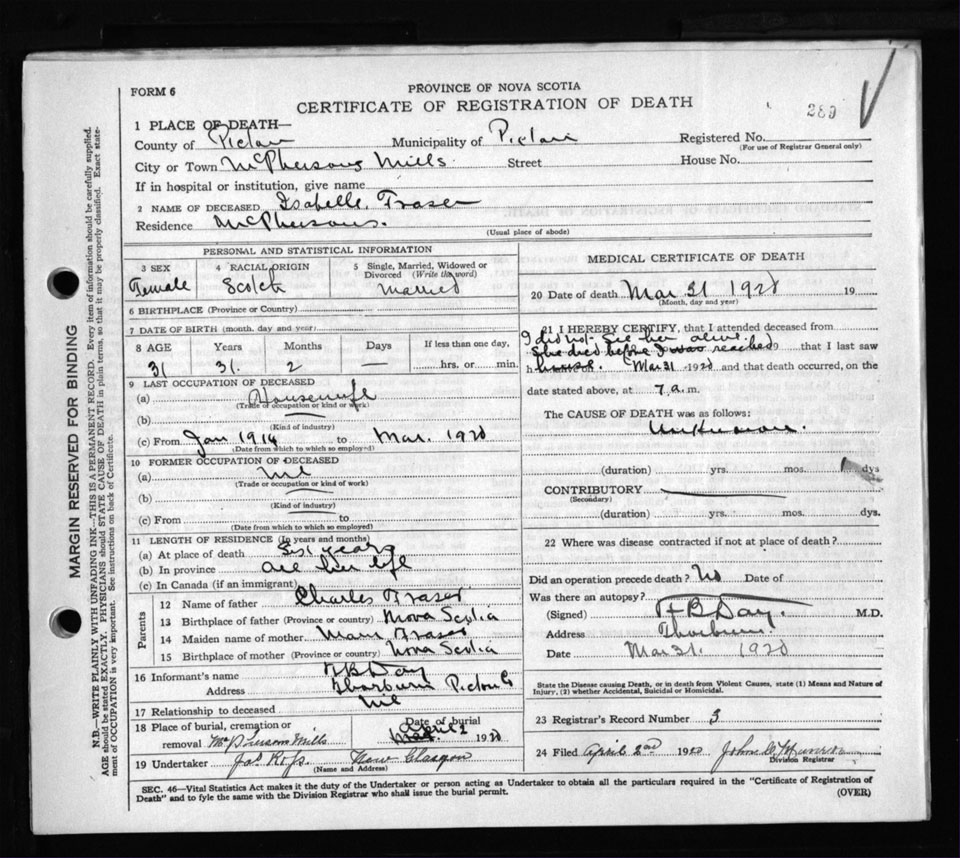 FORM 6
PROVINCE OF NOVA SCOTIA
CERTIFICATE OF REGISTRATION OF DEATH
289
1 PLACE OF DEATH—
County of Pictou Municipality of Pictou Registered No.
(For use of Registrar General only)
City or Town McPhersons Mills Street House No.
If in hospital or institution, give name
2 NAME OF DECEASED Isabelle Fraser
Residence McPhersons.
(Usual place of abode)
PERSONAL AND STATISTICAL INFORMATION
3 SEX 4 RACIAL ORIGIN 5 Single, Married, Widowed or Divorced (Write the word)
Female Scotch Married
6 BIRTHPLACE (Province or Country)
7 DATE OF BIRTH (month, day and year)
8 AGE Years Months Days If less than one day,
31 31. 2 — hrs. or min.
9 LAST OCCUPATION OF DECEASED
(a) Housewife
(Trade or occupation or kind of work)
(b)
(Kind of industry)
(c) From Jan 1914 to Mar. 1928
(Date from which to which so employed)
10 FORMER OCCUPATION OF DECEASED
(a) Nil
(Trade or occupation or kind of work)
(b)
(Kind of industry)
(c) From to
(Date from which to which so employed)
11 LENGTH OF RESIDENCE (In years and months)
(a) At place of death Six years
(b) In province All her life
(c) In Canada (if an immigrant)
Parents
12 Name of father Charles Fraser
13 Birthplace of father (Province or country) Nova Scotia
14 Maiden name of mother Mary Fraser
15 Birthplace of mother (Province or country) Nova Scotia
16 Informant's name HB Day
Address Thorburn Pictou Co
17 Relationship to deceased Nil
18 Place of burial, cremation or Date of burial
removal McPherson Mills April 2 1928
19 Undertaker Jas Ross New Glasgow
(Name and Address)
MEDICAL CERTIFICATE OF DEATH
20 Date of death Mar 31 1928 19
(Month, day and year)
21 I HEREBY CERTIFY, that I attended deceased from
I did not see her alive.
She died before I was reached 9 that I last saw
h house. Mar 31 1928 and that death occurred, on the
date stated above, at 7 a.m.
The CAUSE OF DEATH was as follows:
Unknown.
(duration) yrs. mos. dys
CONTRIBUTORY
(Secondary)
(duration) yrs. mos. dys.
22 Where was disease contracted if not at place of death?
Did an operation precede death? No Date of
Was there an autopsy?
(Signed) HB Day. M.D.
Address Thorburn.
Date Mar 31. 1928
State the Disease causing Death, or in death from Violent Causes, state (1) Means and Nature of
Injury, (2) whether Accidental, Suicidal or Homicidal.
23 Registrar's Record Number 3
24 Filed April 2nd 1928 John
Division Registrar
SEC. 46—Vital Statistics Act makes it the duty of the Undertaker or person acting as Undertaker to obtain all the particulars required in the "Certificate of Registration of
Death" and to fyle the same with the Division Registrar who shall issue the burial permit. (OVER)
MARGIN RESERVED FOR BINDING
N.B.—WRITE PLAINLY WITH UNFADING INK—THIS IS A PERMANENT RECORD. Every item of information should be carefully supplied.
AGE should be stated EXACTLY. PHYSICIANS should STATE CAUSE OF DEATH in plain terms, so that it may be properly classified. Exact state-
ment of OCCUPATION is very important. See instructions on back of Certificate.